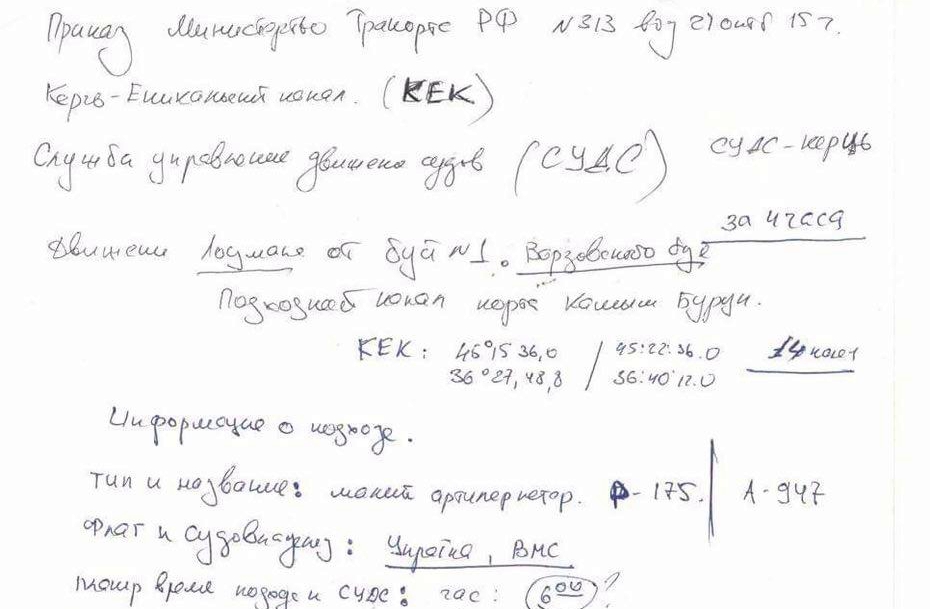 Приказ Министерство Транорте РФ N313 вод 21 октб 15 г.
Керчь-Еникальский канал. (КЕК)
Служба управление движене судов (СУДС) СУДС-Керць
за 4 часа
Движени Лоцмана от буй №1. Варзовского буе
Подходной канал порта Камыш Бурун.
КЕК: 45°15 36,0 / 45:22:36.0
36°27,48,8 / 36:40'12.0
Информацие о подходе.
тип и название: малий артилер катор. Р-175. | А-947
Флаг и Судовладец: Україна, ВМС
планир время подхода к СУДС: час: 6 00 ?